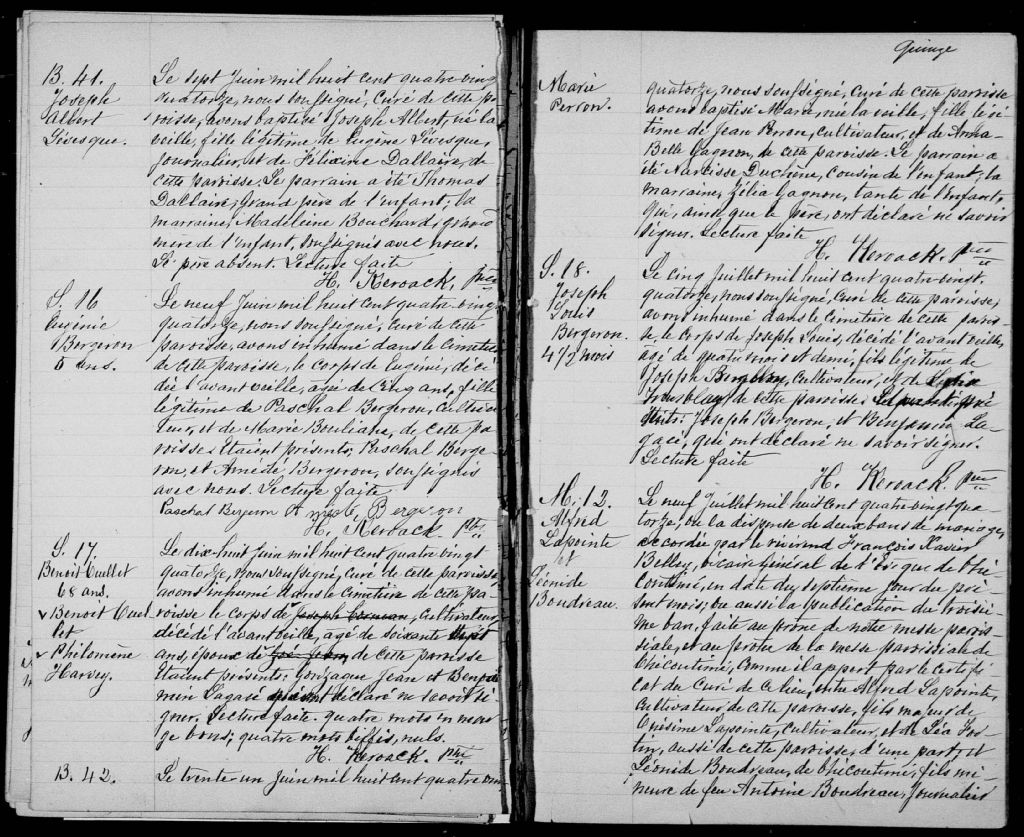 B. 41.
Joseph
Albert
Lévesque.
Le sept Juin mil huit cent quatre ving
quatorze, nous soussigné, curé de cette pa-
roisse, avons baptisé Joseph Albert, né la
veille, fils légitime de Eugène Lévesque,
Journalier, et de Félixine Dallaire, de
cette paroisse. Le parrain a été Thomas
Dallaire, grand père de l'enfant, la
marraine, Madeleine Bouchard, grand
mère de l'enfant, soussignés avec nous.
Le père absent. Lecture faite
H. Keroack, Ptre
S. 16
Eugénie
Bergeron
5 ans.
Le neuf Juin mil huit cent quatre ving
quatorze, nous soussigné, curé de cette
paroisse, avons inhumé dans le cimetière
de cette paroisse, le corps de Eugénie, décé-
dée l'avant veille, agée de cinq ans, fille
légitime de Paschal Bergeron, cultiva
teur, et de Marie Bouliane, de cette pa-
roisse. Etaient présents: Paschal Berge-
ron, et Amédé Bergeron, soussignés
avec nous. Lecture faite
Paschal Bergeron Amédé Bergeron
H. Keroack. Ptre
S. 17.
Benoit Ouellet
68 ans.
Benoit Ouel
let
Philomène
Harvey.
Le dix-huit Juin mil huit cent quatre vingt
quatorze, nous soussigné, curé de cette paroisse
avons inhumé dans le cimetière de cette pa-
roisse le corps de cultivateur,
décédé l'avant veille, agé de soixante
ans, époux de de cette paroisse
Etaient présents: Gonzague Jean et Benja
min Lagacé déclaré ne savoir si-
gner. Lecture faite. quatre mots en mar
ge bons; quatre mots biffés, nuls.
H. Keroack Ptre
B. 42.
Le trente un Juin mil huit cent quatre vin
Quinze
Marie
Perron.
quatorze, nous soussigné, curé de cette paroisse
avons baptisé Marie, née la veille, fille légi-
time de Jean Perron, cultivateur, et de Anna
Belle Gagnon, de cette paroisse. Le parrain a
été Narcisse Duchène, cousin de l'enfant, la
marraine, Zélia Gagnon, tante de l'enfant,
qui, ainsi que le père, ont déclaré ne savoir
signer. Lecture faite
H. Keroack. Ptre
S. 18.
Joseph
Louis
Bergeron.
4 1/2 mois
Le cinq Juillet mil huit cent quatre vingt
quatorze, nous soussigné, curé de cette paroisse,
avons inhumé dans le cimetière de cette parois-
se, le corps de Joseph Louis, décédé l'avant veille,
agé de quatre mois et demi, fils légitime de
Joseph Bergeron, cultivateur, et de
Tremblay de cette paroisse.
Joseph Bergeron, et Benjamin La-
gacé, qui ont déclaré ne savoir signer.
Lecture faite
H. Keroack. Ptre
M. 12
Alfred
Lapointe
et
Léonide
Boudreau.
Le neuf Juillet mil huit cent quatre vingt qua-
torze, vu la dispense de deux bans de mariage,
accordée par le révérend François Xavier
Belley, vicaire général de l'Evêque de Chi-
coutimi, en date du septième jour du pré-
sent mois; vu aussi la publication du troisiè-
me ban, faite au prône de notre messe parois-
siale, et au prône de la messe paroissiale de
Chicoutimi, comme il appert par le certifi-
cat du curé de ce lieu, entre Alfred Lapointe,
cultivateur de cette paroisse, fils majeur de
Onésime Lapointe, cultivateur, et de Léa For-
tin, aussi de cette paroisse, d'une part; et
Léonide Boudreau, de Chicoutimi, fille mi-
neure de feu Antoine Boudreau, Journalier